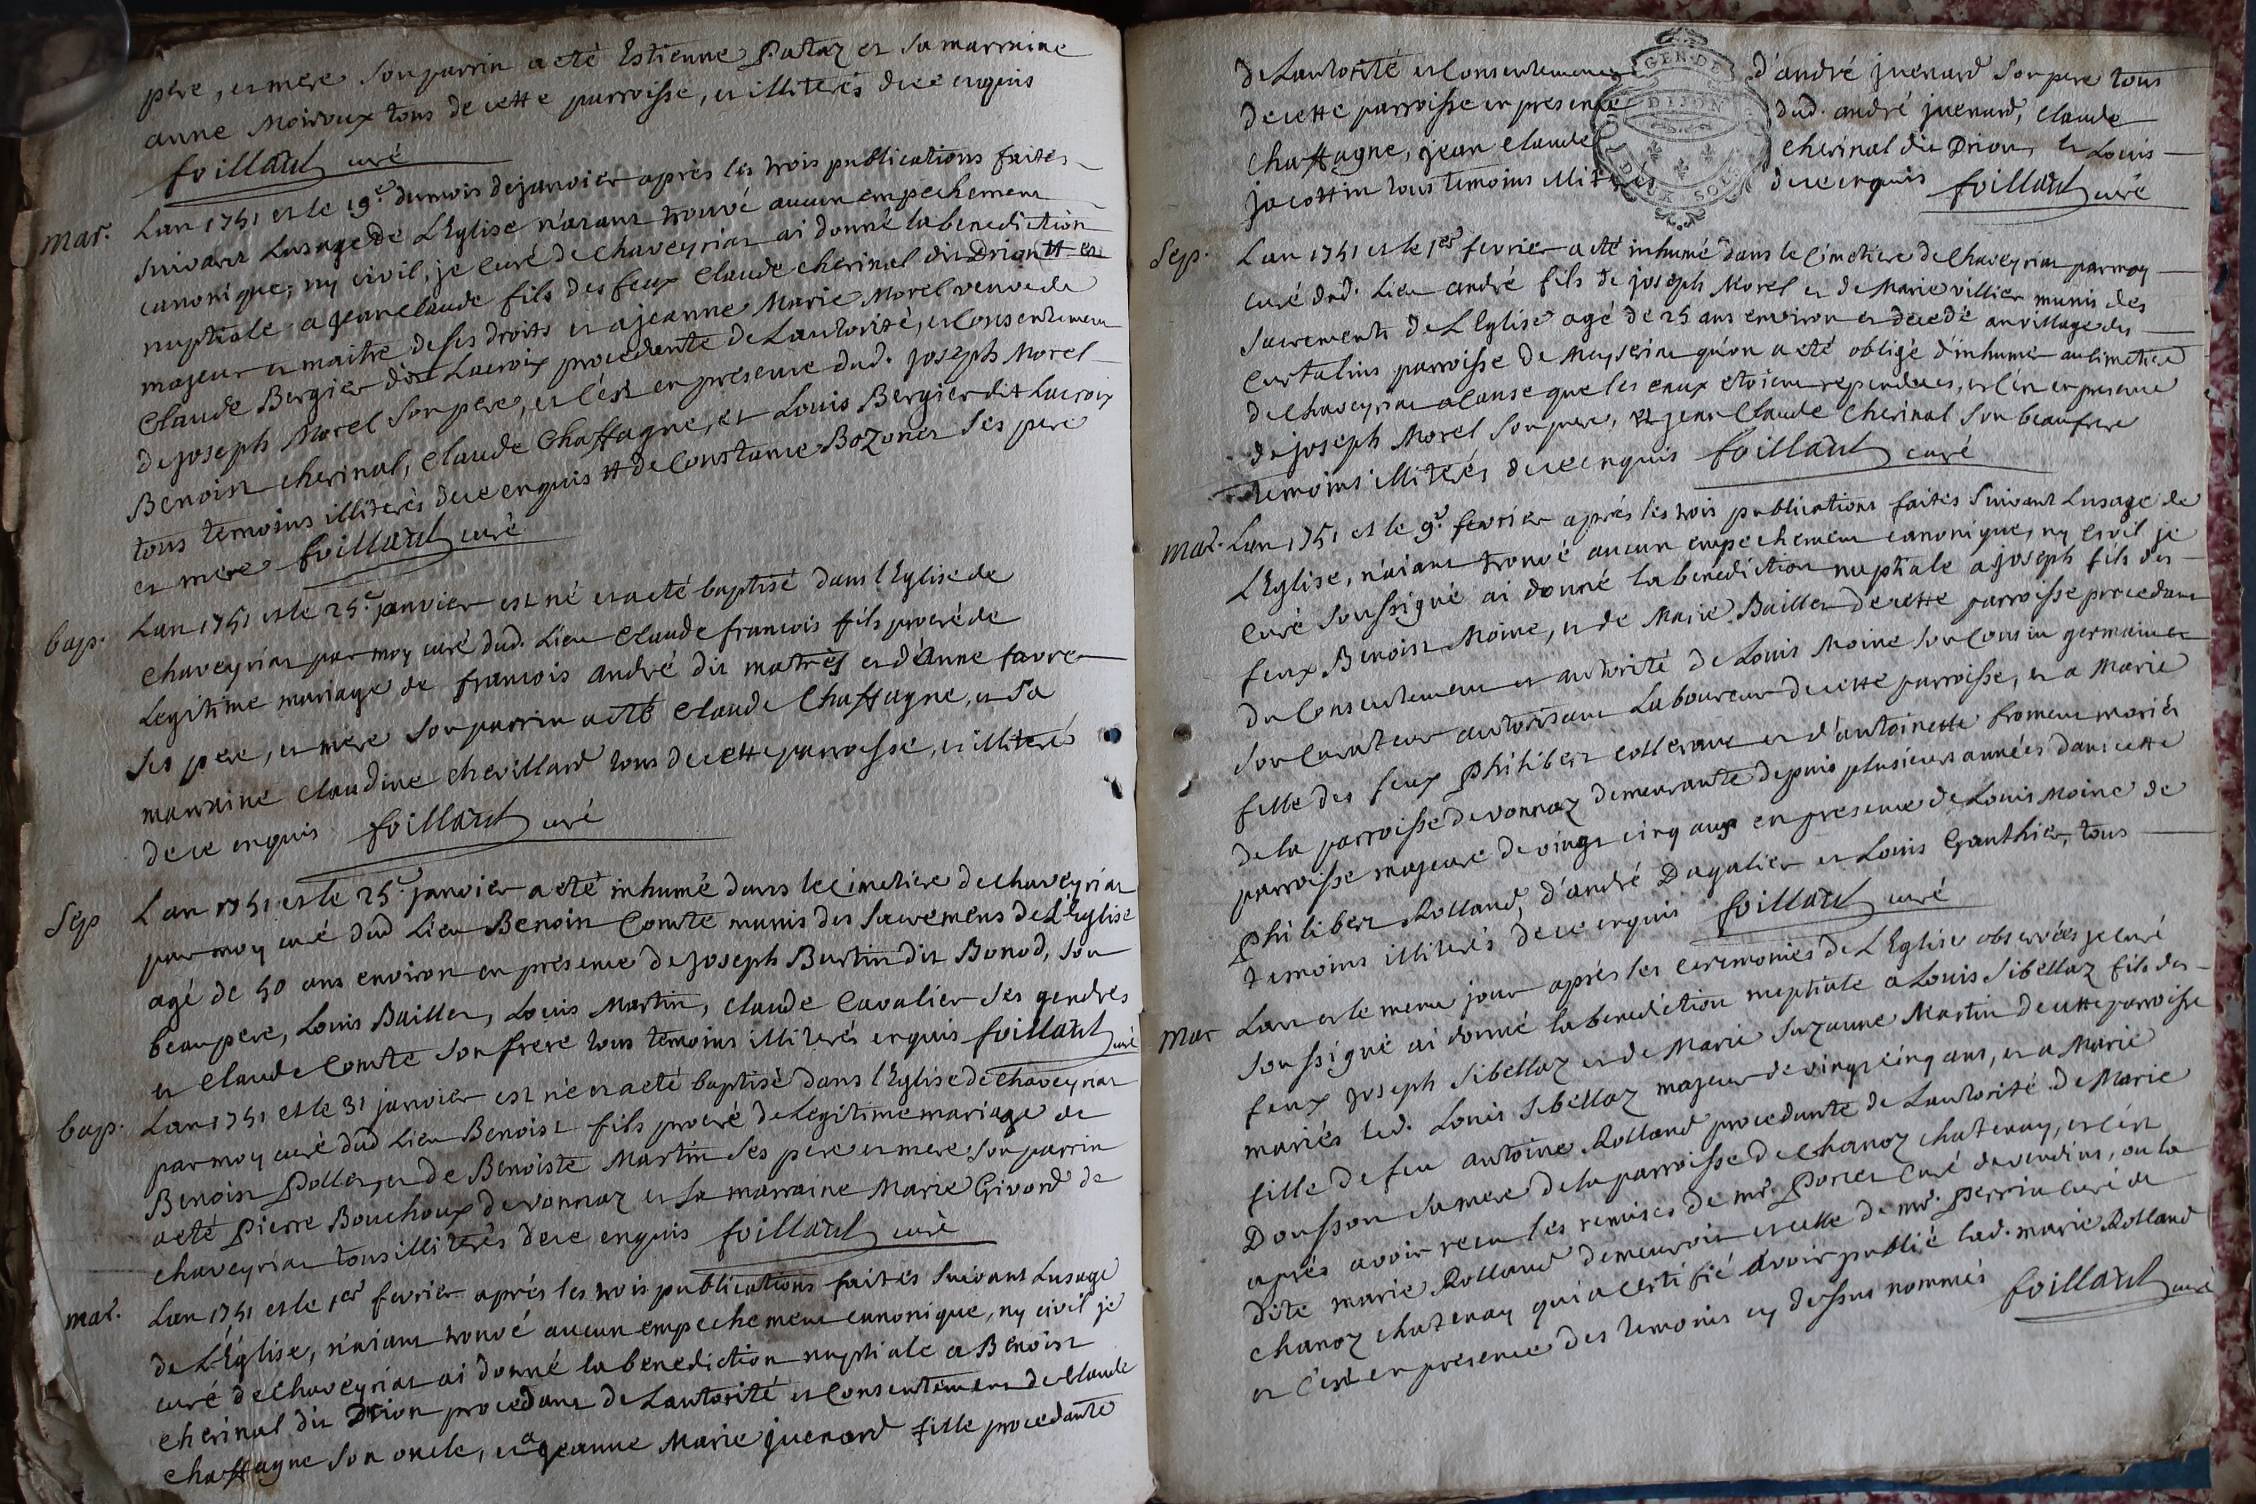 père, et mere son parrin a eté Estienne Pataz et sa marraine
anne Moiroux tous de cette parroisse, et illiterés de ce enquis
foillard curé
mar. Lan 1751 et le 19e. du mois de janvier après les trois publications faites
suivant Lusage de L'Eglise n'aiant trouvé aucun empechement
canonique, ny civil, je Curé de Chaveyriat ai donné la benediction
nuptiale a jean claude fils des feux Claude cherinal dit Drion # et
majeur et maitre de ses droits et a jeanne Marie Morel veuve de
Claude Bergier dit Lacroix procedante de Lautorité, et Consentement
de joseph Morel son pere, et c'est en presence dud. joseph Morel
Benoist cherinal, Claude Chaffagne, et Louis Bergier dit Lacroix
tous temoins illiterés de ce enquis # de Constance Bozonet ses pere
et mere foillard curé
bap. Lan 1751 et le 25e. janvier est né et a eté baptisé dans l'Eglise de
Chaveyriat par moy curé dud. Lieu Claude francois fils procréé de
Legitime mariage de francois andré dit matrès et d'Anne favre
ses pere, et mere son parrin a eté Claude Chaffagne, et sa
marraine claudine chevillard tous de cette parroisse, et illiteré
de ce enquis foillard curé
Sep Lan 1751 et le 25e. janvier a eté inhumé dans le Cimetiere de chaveyriat
par moy curé dud Lieu Benoin Comte munis des sacremens de L'Eglise
agé de 50 ans environ en presence de joseph Burtin dit Bonod, son
beaupere, Louis Baillet, Louis Martin, Claude Cavalier ses gendres
et Claude Comte son frere tous temoins illiterés enquis foillard curé
bap. Lan 1751 et le 31 janvier est né et a eté baptisé dans l'Eglise de Chaveyriat
par moy curé dud Lieu Benoist fils procréé de Legitime mariage de
Benoist Pollet, et de Benoiste Martin ses pere et mere, son parrin
a eté Pierre Bouchoux de vonnaz et sa marraine Marie Givord de
chaveyriat tous illiterés de ce enquis foillard curé
mar. Lan 1751 et le 1er fevrier après les trois publications faites suivant Lusage
de L'Église, n'aiant trouvé aucun empechement canonique, ny civil je
curé de Chaveyriat ai donné la benediction nuptiale a Benoist
cherinal dit Drion procedant de Lautorité et Consentement de Claude
chaffagne son oncle, et a jeanne Marie juenard fille procedante
de Lautorité et Consentement d'andré juenard son pere tous
de cette parroisse en presence dud. andré juenard, Claude
Chaffagne, jean Claude cherinal dit Drion, et Louis
jacottin tous temoins illiterés de ce enquis foillard curé
GEN. DE DIJON DEUX SOLS
Sep. Lan 1751 et le 1er fevrier a eté inhumé dans le Cimetiere de Chaveyriat par moy
curé dud. Lieu andré fils de joseph Morel et de Marie villier munis des
sacrements de L'Eglise agé de 25 ans environ et decedé au village des
Curtalins parroisse de Meyseriat qu'on a eté obligé d'inhumer au Cimetiere
de Chaveyriat a Cause que les eaux etoient rependues, et c'est en presence
de joseph Morel son pere, et jean Claude Cherinal son beaufrere
temoins illiterés de ce enquis foillard curé
mar. Lan 1751 et le 9e. fevrier après les trois publications faites suivant Lusage de
L'Eglise, n'aiant trouvé aucun empechement canonique, ny civil je
Curé soussigné ai donné la benediction nuptiale a joseph fils des
feux Benoist Moine, et de Marie Baillet de cette parroisse procedant
du Consentement et autorité de Louis Moine son Cousin germain et
son Curateur autorisant Laboureur de cette parroisse, et a Marie
fille des feux Philibert collerant et d'antoinette froment mariés
de la parroisse de vonnaz demeurante depuis plusieurs années dans cette
parroisse majeure de vingt cinq ans en presence de Louis Moine de
Philibert Rolland, d'andré Dagalier et Louis Gauthier, tous
temoins illiterés de ce enquis foillard curé
mar Lan et le meme jour après les ceremonies de L'Eglise observées je curé
soussigné ai donné la benediction nuptiale a Louis sibellaz fils des
feux joseph sibellaz et de Marie Suzanne Martin de cette parroisse
mariés led. Louis sibellaz majeur de vingt cinq ans, et a Marie
fille de feu antoine Rolland procedante de Lautorité de Marie
Dousson sa mere de la parroisse de Chanoz chatenay, et c'est
après avoir recu les remises de mr. Poncet Curé de vendins, ou la
dite marie Rolland demeuroit et celle de mr. perrin curé de
chanoz chatenay qui a Certifié avoir publié lad. marie Rolland
et c'est en presence des temoins cy dessus nommés foillard curé